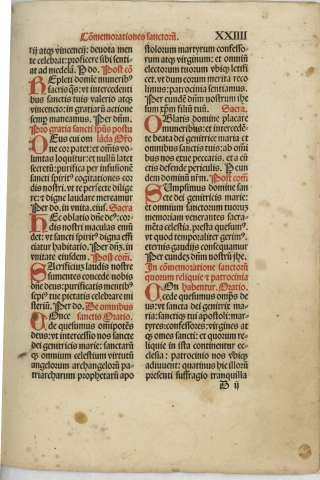 Cõmemorationes sanctorũ.
XXIIII
rij atqꝫ vincencij: deuota men
te celebrat: proficere sibi senti
at ad medelã. P do. Post cõ
REpleti domine muneribꝰ
sacris qs: vt intercedenti
bus sanctis tuis valerio atqꝫ
vincencio: in gratiarũ actione
semp maneamus. Per dñm.
Pro gratia sancti spũs postu
DEus cui om lãda Oro
ne cor patet: et omĩs vo
luntas loquitur: et nullũ latet
secretũ: purifica per infusionẽ
sancti spiritꝰ cogitationes cor
dis nostri. vt te perfecte dilige
re: et digne laudare mereamur
Per do. in vnita. eiuſ. Sacra
HEc oblatio dñe deꝰ: cor
dis nostri maculas emũ
det: vt sancti spiritꝰ digna effi
ciatur habitatio. Per dñꝫ. in
vnitate eiusdem. Post com̃.
SAcrificium laudis nostre
sumentes concede nobis
dñe deus: purificatis mentibꝰ
sepiꝰ tue pietatis celebrare mi
steriũ. Per do. De omnibus
COnce sanctis Oratio.
de quesumus om̃ipotẽs
deus: vt intercessio nos sancte
dei genitricis marie: sanctarũ
qꝫ omnium celestium virtutũ
angelorum archangelorũ pa
triarcharum prophetarũ apo
stolorum martyrum confesso
rum atqꝫ virginum: et omniũ
electorum tuorum vbiqꝫ letifi
cet. vt dum eorum merita reco
limus: patrocinia sentiamus.
Per eundẽ dñum nostrum ihe
sum xp̃m filiũ tuũ. Sacra.
OBlatis domine placare
muneribus: et intercedẽ
te beata dei genitrice maria et
omnibus sanctis tuis: ab om̃i
bus nos exue peccatis. et a cũ
ctis defende periculis. P eun
dem dominũ nr̃m. Post com̃.
SUmpsimus domine san
cte dei genitricis marie
et omnium sanctorum tuorũ
memoriam venerantes sacra
mẽta celestia. presta quesumꝰ.
vt quod temporaliter gerimꝰ.
eternis gaudijs consequamur
Per eundẽ dñm nostrũ ihe.
In cõmemoratione sanctorũ
quorum reliquie et patrocinia
COn habentur. Oratio.
cede quesumus om̃ps de
us: vt sancta dei genitrix ma
ria: sanctiqꝫ tui apostoli: mar
tyres: confessores: virgines at
qꝫ omnes sancti: et quorum re
liquie in ista continentur ec
clesia: patrocinio nos vbiqꝫ
adiuuent: quatinus hic illorũ
presenti suffragio tranquilla
D ij